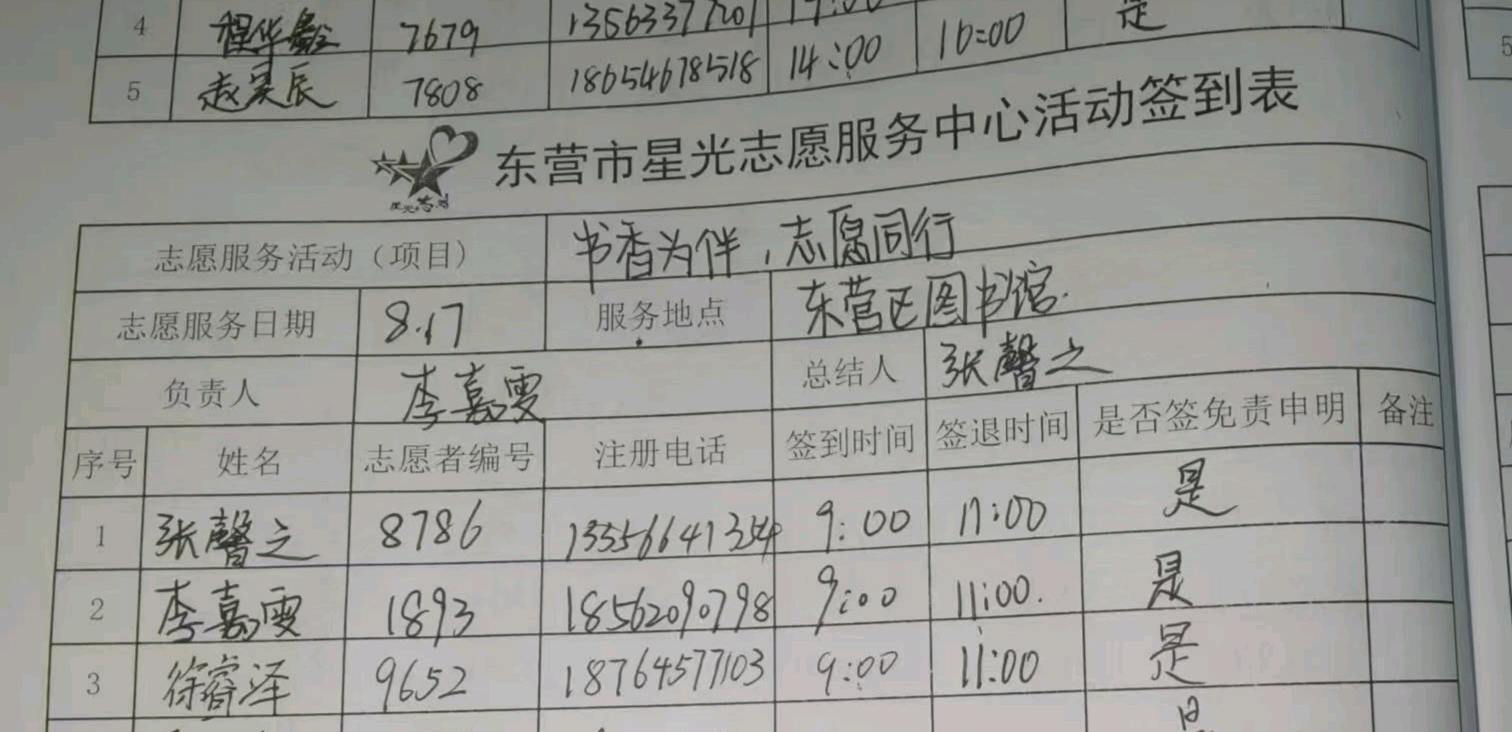 4 程华毅 7679 13563377201 14:00 是
5 赵昊辰 7808 18654678518 14:00 16:00
东营市星光志愿服务中心活动签到表
志愿服务活动（项目） 书香为伴，志愿同行
志愿服务日期 8.17 服务地点 东营区图书馆.
负责人 李嘉雯 总结人 张馨之
序号 姓名 志愿者编号 注册电话 签到时间 签退时间 是否签免责申明 备注
1 张馨之 8786 9:00 11:00 是
2 李嘉雯 1893 18562090798 9:00 11:00. 是
3 徐睿泽 9652 18764577103 9:00 11:00 是
是
5